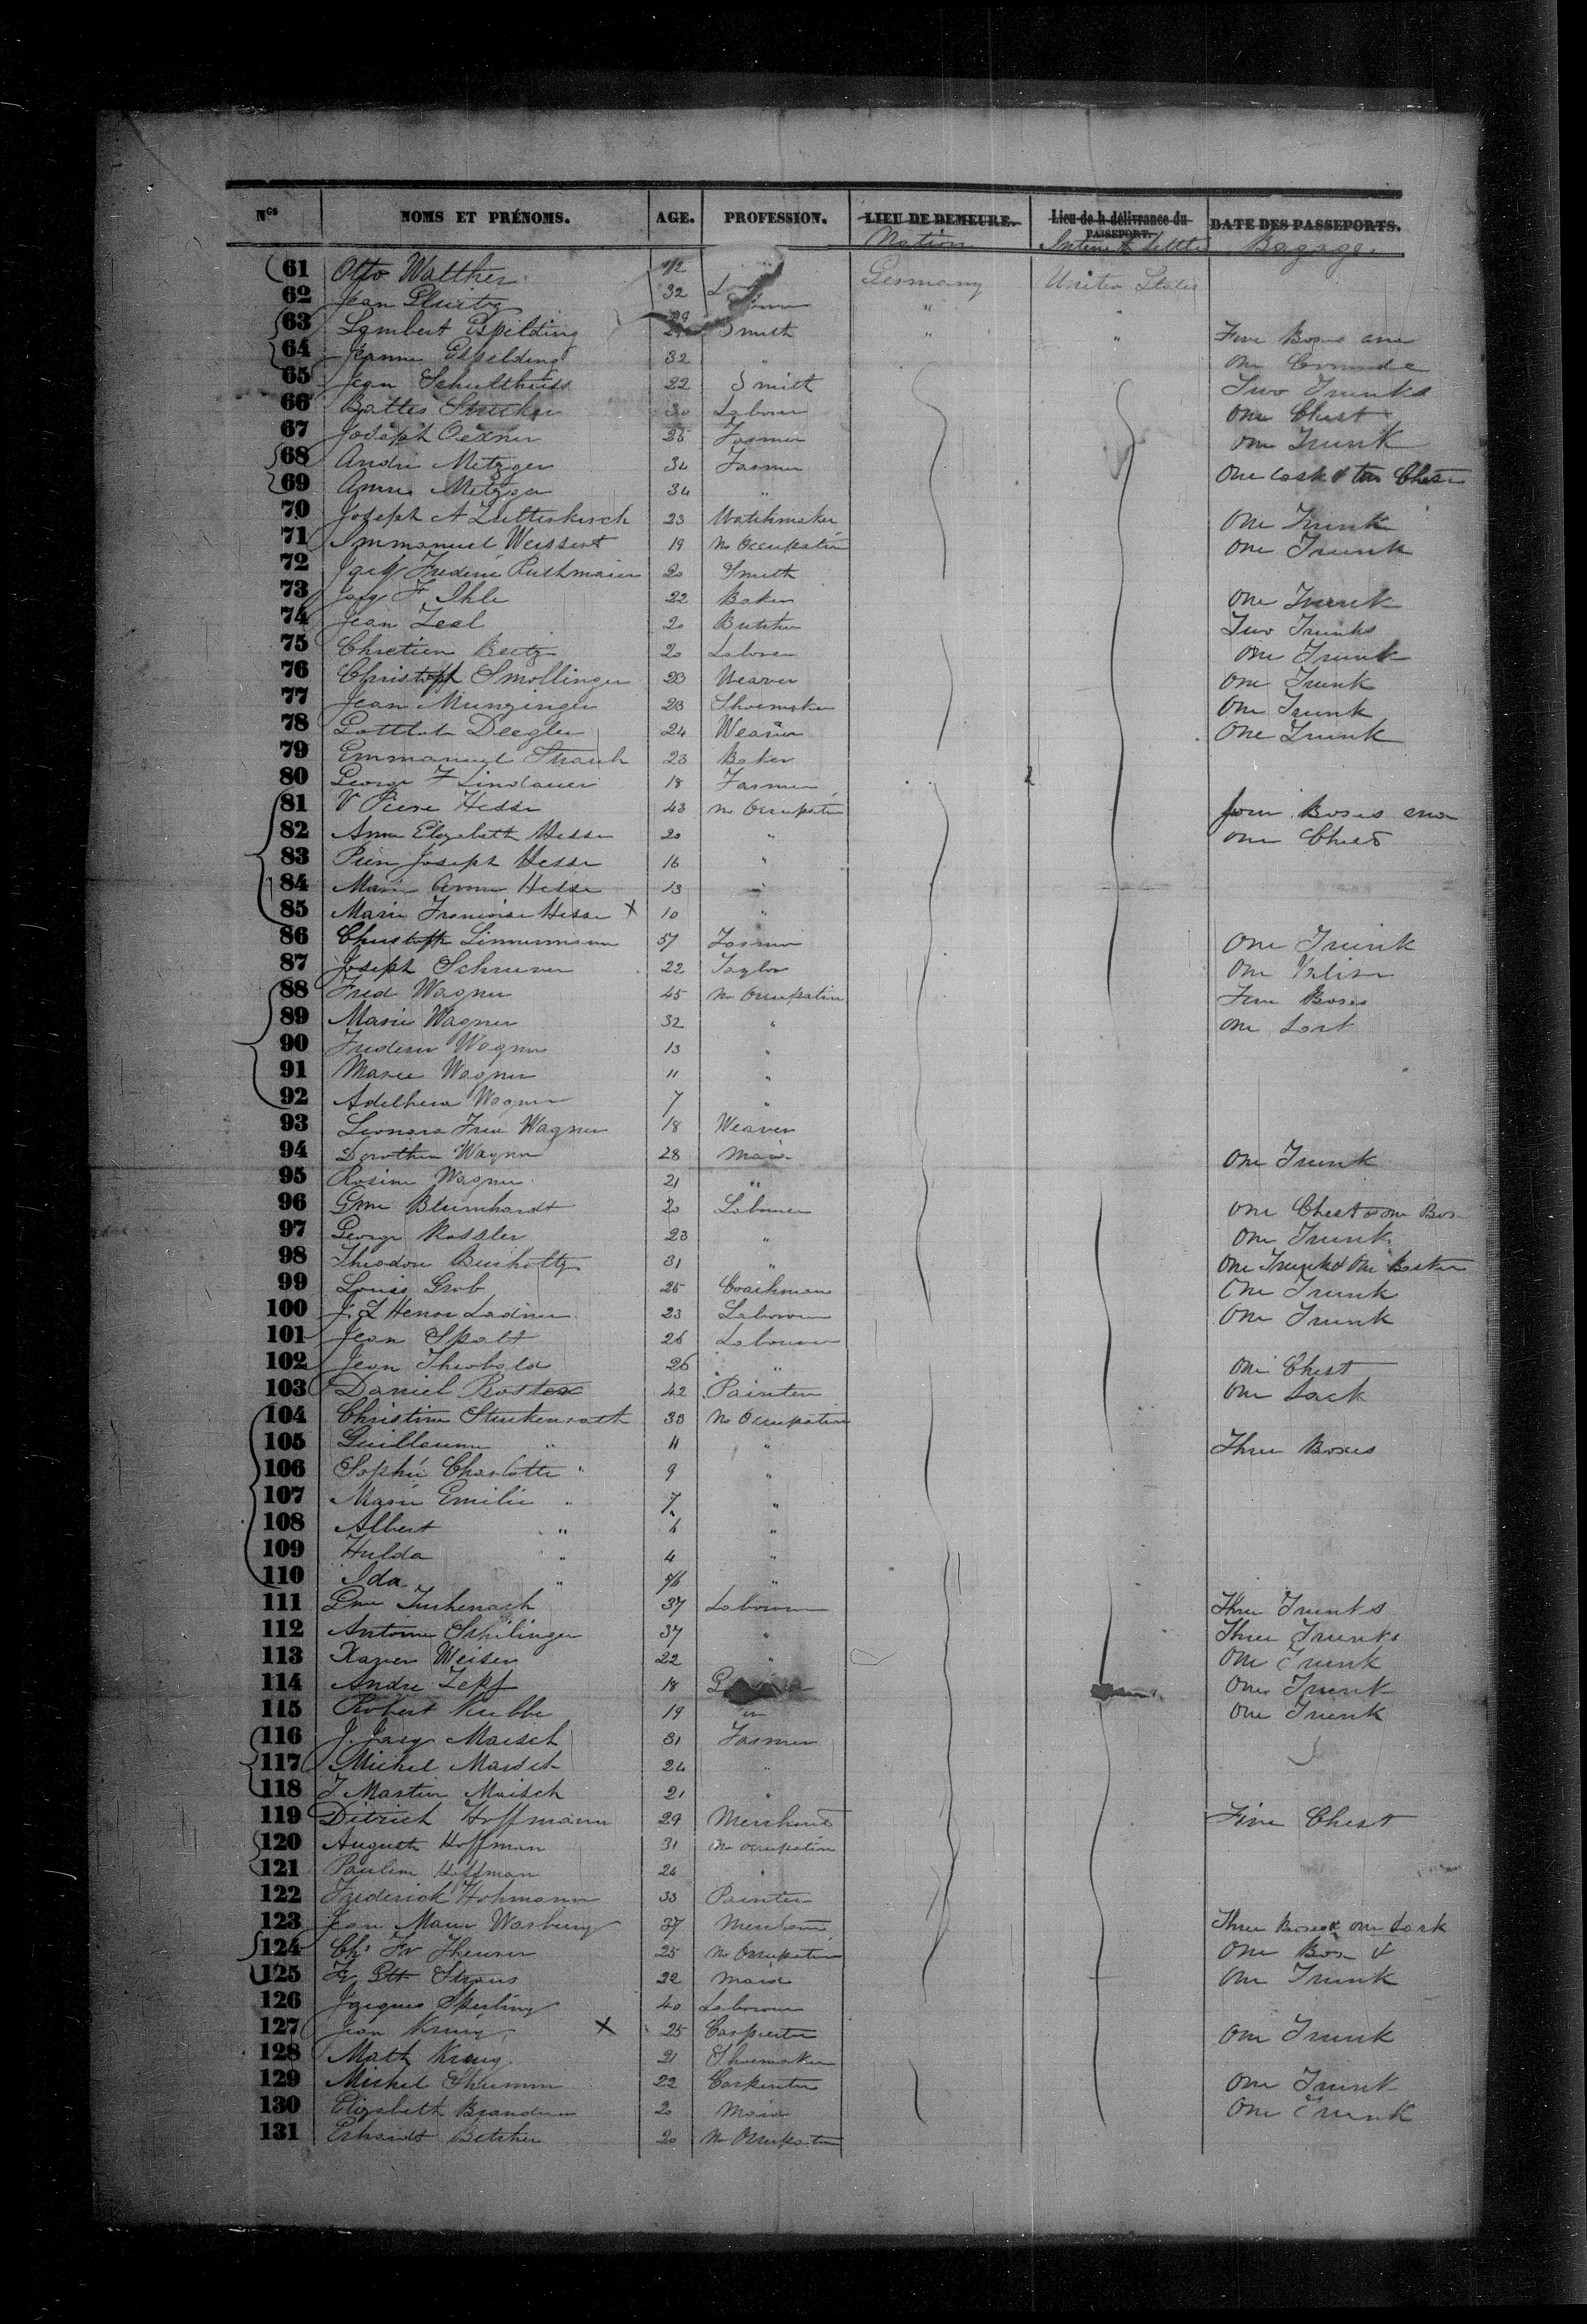 Nos NOMS ET PRÉNOMS. AGE. PROFESSION. LIEU DE DEMEURE. Lieu de la délivrance du PASSEPORT. DATE DES PASSEPORTS.
Nation Bagage
61 Otto Walther Germany United States
62 Jean 32 "
63 Lambert Espelding Smith " " Five Boxes and
64 Jeanne Espelding 32 " one
65 Jean Schultheiss 22 Smith Two Trunks
66 30 Labourer One Chest
67 Joseph Oexner 25 Farmer one Trunk
68 André Metzger 34 Farmer One Cask & two Chest
69 Anna Metzger 34 "
70 Joseph A Lutterkirch 23 Watchmaker One Trunk
71 Immanuel Weissert 19 No Occupation One Trunk
72 Jacq Frederic 20 Smith
73 Jacq F. Ihle 22 Baker One Trunk
74 Jean Zeal 20 Butcher Two Trunks
75 Chretien Beitz 20 Laborer One Trunk
76 Christoph Smollinger 23 Weaver One Trunk
77 Jean Munzinger 23 Shoemaker One Trunk
78 Gottlob Deegler 24 Weaver One Trunk
79 Emmanuel Straub 23 Baker
80 George F Lindauer 18 Farmer
81 V Pierre Hesse 43 No Occupation four Boxes and
82 Anna Elizabeth Hesse 20 " one Chest
83 Pierre Joseph Hesse 16 "
84 Marie Anna Hesse 13 "
85 Marie Francoise Hesse X 10 "
86 Christoph Linnermann 57 Farmer One Trunk
87 Joseph Schriener 22 Taylor One Valise
88 Fred Wagner 45 No Occupation Five Boxes
89 Marie Wagner 32 " one
90 Frederic Wagner 13 "
91 Marie Wagner 11 "
92 Wagner 7 "
93 Wagner 18 Weaver
94 Dorothea Wagner 28 Maid One Trunk
95 Rosine Wagner 21 "
96 Gme Blumhardt 20 Labourer One Chest & one Box
97 George Rossler 23 " One Trunk
98 Theodore Buchholtz 31 " One Trunk & One Basket
99 Louis Grob 25 Coachman One Trunk
100 J. L Henri Ladner 23 Labourer One Trunk
101 Jean Spalt 26 Labourer
102 Jean Theobald 26 " One Chest
103 Daniel 42 Painter One Sack
104 Christine Stuckenrath 33 No Occupation
105 Guillaume " 11 " Three Boxes
106 Sophie Charlotte " 9 "
107 Marie Emilie " 7 "
108 Albert " 6 "
109 Hulda " 4 "
110 Ida " "
111 37 Labourer Three Trunks
112 Antoine Schilinger 37 " Three Trunks
113 Xavier Weisen 22 " One Trunk
114 Andre Zepf 18 One Trunk
115 Robert Kubbe 19 " One Trunk
116 J. Jacq Maisch 31 Farmer
117 Michel Maisch 24 "
118 J Martin Maisch 21 "
119 Ditrich Hoffmann 29 Merchant Five Chest
120 Auguste Hoffman 31 No occupation
121 Pauline Hoffman 24 "
122 Frederick Hohmann 33 Painter
123 Jean Maur Warburg 37 Merchant Three Boxes & one Sack
124 Chs Fr Theurer 25 No Occupation One Box &
125 22 Maid One Trunk
126 Jacques Sperling 40 Labourer
127 Jean Krug X 25 Carpenter One Trunk
128 Math Krug 21 Shoemaker
129 Michel Thumm 22 Carpenter One Trunk
130 Elizabeth 20 Maid One Trunk
131 Erhardt Betcher 20 No Occupation